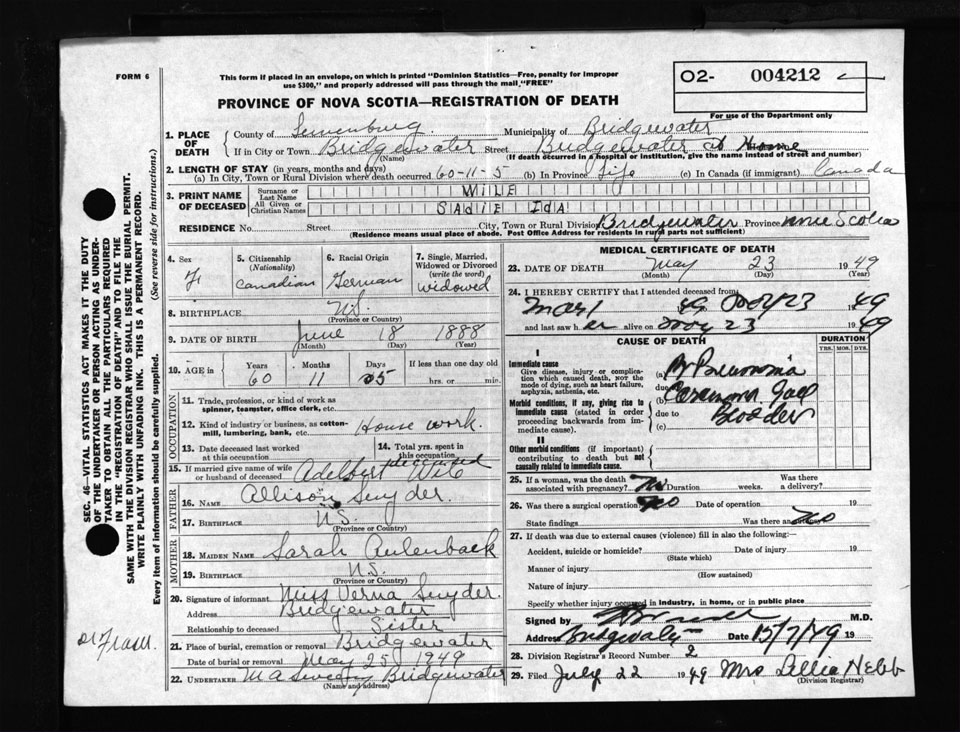 FORM 6
This form if placed in an envelope, on which is printed "Dominion Statistics—Free, penalty for improper
use $300," and properly addressed will pass through the mail "FREE"
O2- 004212
For use of the Department only
PROVINCE OF NOVA SCOTIA—REGISTRATION OF DEATH
1. PLACE OF DEATH
County of Lunenburg. Municipality of Bridgewater
If in City or Town Bridgewater Street Bridgewater at Home
(Name) (If death occurred in a hospital or institution, give the name instead of street and number)
2. LENGTH OF STAY (in years, months and days)
(a) In City, Town or Rural Division where death occurred 60-11-5 (b) In Province Life (c) In Canada (if immigrant) Canada
3. PRINT NAME OF DECEASED
Surname or Last Name WILE
All Given or Christian Names SADIE IDA
RESIDENCE No. Street City, Town or Rural Division Bridgewater Province Nova Scotia
(Residence means usual place of abode. Post Office Address for residents in rural parts not sufficient)
SEC. 46—VITAL STATISTICS ACT MAKES IT THE DUTY
OF THE UNDERTAKER OR PERSON ACTING AS UNDER-
TAKER TO OBTAIN ALL THE PARTICULARS REQUIRED
IN THE "REGISTRATION OF DEATH" AND TO FILE THE
SAME WITH THE DIVISION REGISTRAR WHO SHALL ISSUE THE BURIAL PERMIT.
WRITE PLAINLY WITH UNFADING INK. THIS IS A PERMANENT RECORD.
Every item of information should be carefully supplied. (See reverse side for instructions.)
4. Sex
F
5. Citizenship
(Nationality)
Canadian
6. Racial Origin
German
7. Single, Married,
Widowed or Divorced
(write the word)
widowed
8. BIRTHPLACE N.S.
(Province or Country)
9. DATE OF BIRTH June 18 1888
(Month) (Day) (Year)
10. AGE in Years Months Days If less than one day old
60 11 05 hrs. or min.
OCCUPATION
11. Trade, profession, or kind of work as
spinner, teamster, office clerk, etc.
12. Kind of industry or business, as cotton-
mill, lumbering, bank, etc. House work.
13. Date deceased last worked
at this occupation
14. Total yrs. spent in
this occupation
15. If married give name of wife
or husband of deceased Adelbert Wile deceased
FATHER
16. Name Allison Snyder.
17. Birthplace N.S.
(Province or Country)
MOTHER
18. Maiden Name Sarah Aulenback
19. Birthplace N.S.
(Province or Country)
20. Signature of informant Miss Verna Snyder.
Address Bridgewater
Relationship to deceased Sister
21. Place of burial, cremation or removal Bridgewater
Date of burial or removal May 25, 1949
22. Undertaker M A Bridgewater
(Name and address)
MEDICAL CERTIFICATE OF DEATH
23. DATE OF DEATH May 23 1949
(Month) (Day) (Year)
24. I HEREBY CERTIFY that I attended deceased from
Mar 1 49 to May 23 1949
and last saw her alive on May 23 1949
CAUSE OF DEATH
DURATION
YRS. MOS. DYS.
I
Immediate cause
Give disease, injury or compli-
cation which caused death, not the
mode of dying, such as heart failure,
asphyxia, asthenia, etc.
(a) Pneumonia
due to
Morbid conditions, if any, giving rise to
immediate cause (stated in order
proceeding backwards from im-
mediate cause).
(b) Carcinoma Gall
due to Bladder
(c)
II
Other morbid conditions (if important)
contributing to death but not
causally related to immediate cause.
25. If a woman, was the death
associated with pregnancy? No Duration weeks. Was there
a delivery?
26. Was there a surgical operation? No Date of operation 19
State findings Was there an No
27. If death was due to external causes (violence) fill in also the following:—
Accident, suicide or homicide? Date of injury 19
(State which)
Manner of injury
(How sustained)
Nature of injury
Specify whether injury occurred in industry, in home, or in public place
Signed by M.D.
Address Bridgewater Date 15/7/49 19
28. Division Registrar's Record Number 2
29. Filed July 22 1949 Mrs Lillia Hebb
(Division Registrar)